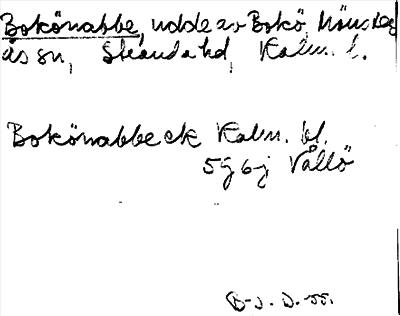 Bokönabbe, udde av Bokö, Mönsterås sn, Stranda hd, Kalm. l.
Bokönabbe ek Kalm. bl.
5g 6j Vållö
B-J. D. -55.